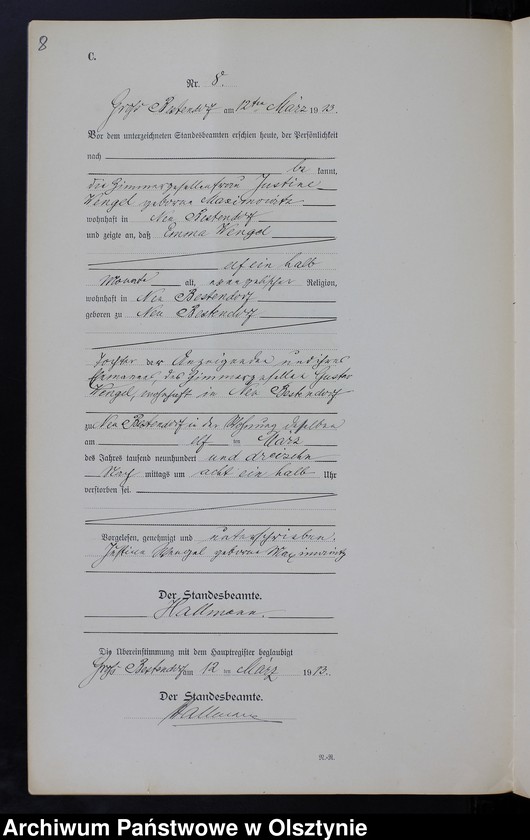 8
C.
Nr. 8.
Groß Bestendorf am 12ten März 1913.
Vor dem unterzeichneten Standesbeamten erschien heute, der Persönlichkeit
nach
be kannt,
die Zimmergesellenfrau Justine
Wengel geborene Maximowitz
wohnhaft in Neu Bestendorf
und zeigte an, daß Emma Wengel
elf ein halb
Monate alt, evangelischer Religion,
wohnhaft in Neu Bestendorf
geboren zu Neu Bestendorf
Tochter der Anzeigenden und ihres
Ehemannes, des Zimmergesellen Gustav
Wengel, wohnhaft in Neu Bestendorf
zu Neu Bestendorf in der Wohnung desselben
am elf ten März
des Jahres tausend neunhundert und dreizehn
Nach mittags um acht ein halb Uhr
verstorben sei.
Vorgelesen, genehmigt und unterschrieben.
Justine Wengel geborene Maximowitz
Der Standesbeamte.
Hallmann.
Die Übereinstimmung mit dem Hauptregister beglaubigt
Groß Bestendorf am 12 ten März 1913.
Der Standesbeamte.
Hallmann
N.-R.
Archiwum Państwowe w Olsztynie